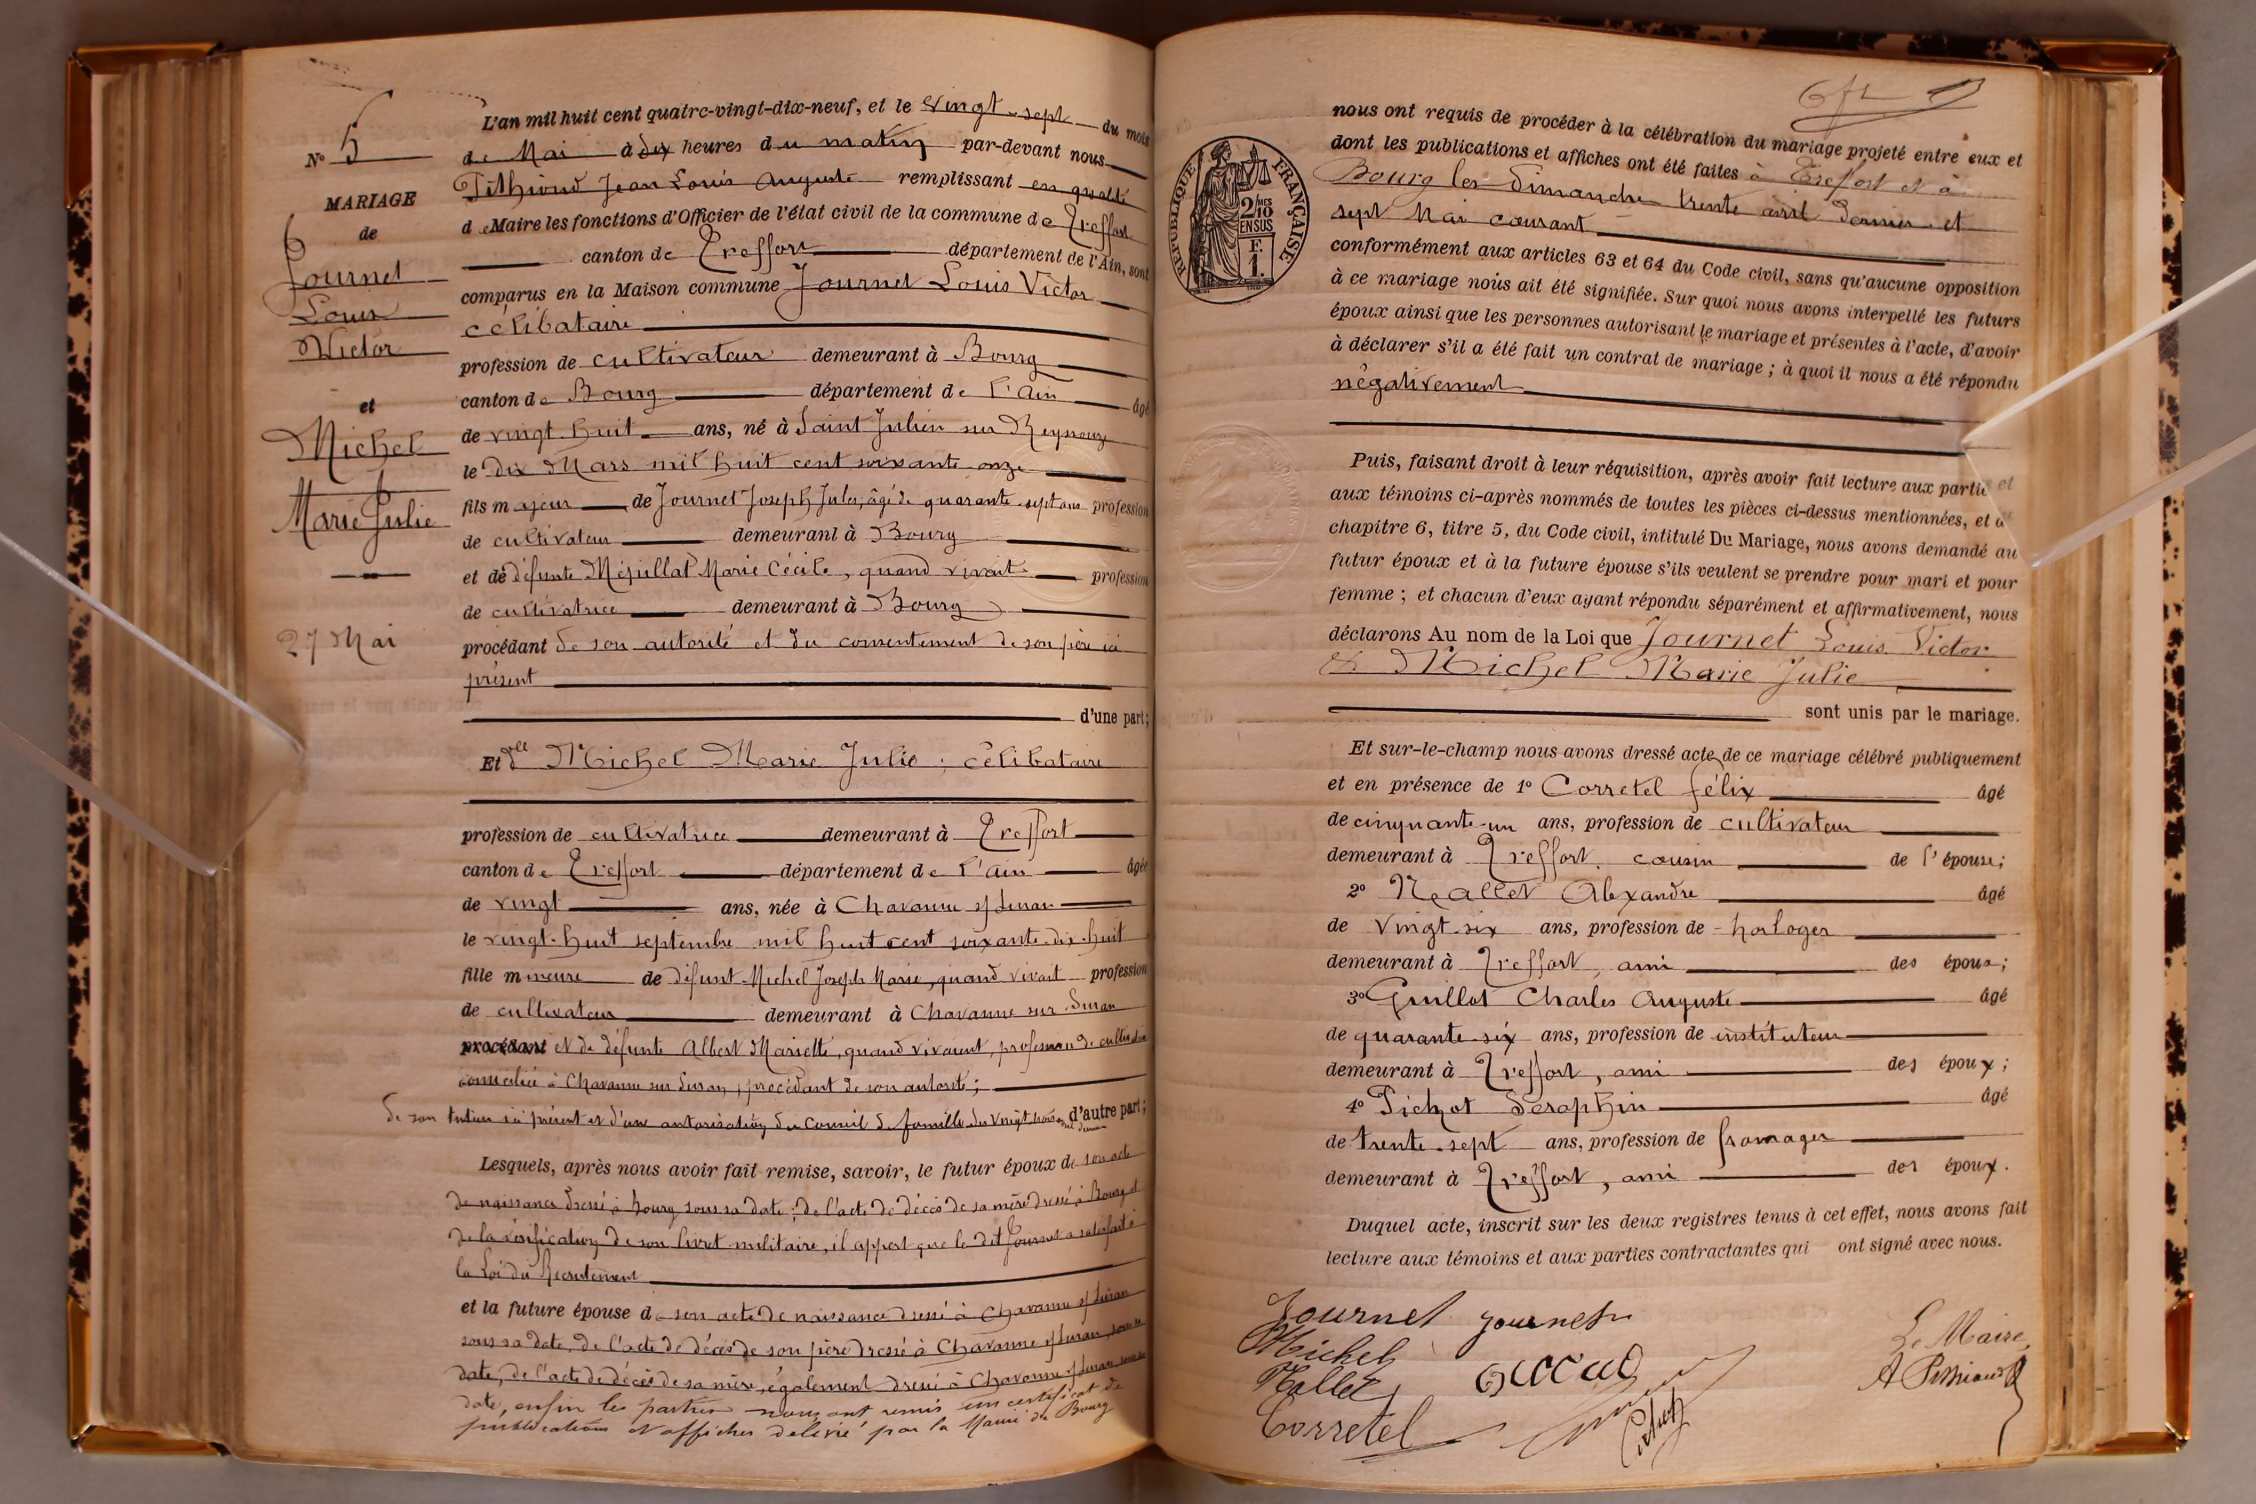 N° 5
MARIAGE
de
Journet
Louis
Victor
et
Michel
Marie Julie
27 Mai
L'an mil huit cent quatre-vingt-dix-neuf, et le vingt-sept du mois
de Mai à dix heures du matin par-devant nous
Pithioud Jean Louis Auguste remplissant en qualité
de Maire les fonctions d'Officier de l'état civil de la commune de Treffort
canton de Treffort département de l'Ain, sont
comparus en la Maison commune Journet Louis Victor
célibataire
profession de cultivateur demeurant à Bourg
canton de Bourg département de l'Ain âgé
de vingt-huit ans, né à Saint Julien sur Reyssouze
le dix Mars mil huit cent soixante onze
fils majeur de Journet Joseph Jules, âgé de quarante-sept ans profession
de cultivateur demeurant à Bourg
et de défunte Marie Cécile, quand vivait profession
de cultivatrice demeurant à Bourg
procédant de son autorité et du consentement de son père ici
présent
d'une part;
Et dlle Michel Marie Julie, célibataire
profession de cultivatrice demeurant à Treffort
canton de Treffort département de l'Ain âgée
de vingt ans, née à Chavanne s/ Suran
le vingt-huit septembre mil huit cent soixante-dix-huit
fille mineure de défunt Michel Joseph Marie, quand vivait profession
de cultivateur demeurant à Chavanne sur Suran
procédant et de défunte Albert Mariette, quand vivaient, profession de
domiciliée à Chavanne sur Suran, procédant de son autorité;
de son tuteur ici présent et d'une autorisation du Conseil de famille du vingt trois d'autre part;
Lesquels, après nous avoir fait remise, savoir, le futur époux de son acte
de naissance dressé à Bourg sous sa date; de l'acte de décès de sa mère dressé à Bourg et
de la vérification de son livret militaire, il appert que le dit Journet a satisfait à
la Loi du Recrutement
et la future épouse de son acte de naissance dressé à Chavanne s/ Suran
sous sa date, de l'acte de décès de son père dressé à Chavanne s/ Suran, sous sa
date, de l'acte de décès de sa mère, également dressé à Chavanne s/ Suran sous sa
date, enfin les parties nous ont remis un certificat de
publications et affiches délivré par la Mairie de Bourg
RÉPUBLIQUE FRANÇAISE
2/10 MES
EN SUS
F.
1.
nous ont requis de procéder à la célébration du mariage projeté entre eux et
dont les publications et affiches ont été faites à Treffort et à
Bourg les dimanche trente avril dernier et
sept Mai courant
conformément aux articles 63 et 64 du Code civil, sans qu'aucune opposition
à ce mariage nous ait été signifiée. Sur quoi nous avons interpellé les futurs
époux ainsi que les personnes autorisant le mariage et présentes à l'acte, d'avoir
à déclarer s'il a été fait un contrat de mariage; à quoi il nous a été répondu
négativement
Puis, faisant droit à leur réquisition, après avoir fait lecture aux parties et
aux témoins ci-après nommés de toutes les pièces ci-dessus mentionnées, et du
chapitre 6, titre 5, du Code civil, intitulé Du Mariage, nous avons demandé au
futur époux et à la future épouse s'ils veulent se prendre pour mari et pour
femme; et chacun d'eux ayant répondu séparément et affirmativement, nous
déclarons Au nom de la Loi que Journet Louis Victor
et Michel Marie Julie
sont unis par le mariage.
Et sur-le-champ nous avons dressé acte de ce mariage célébré publiquement
et en présence de 1° Corretel félix âgé
de cinquante-un ans, profession de cultivateur
demeurant à Treffort, cousin de l'épouse;
2° Nallet Alexandre âgé
de vingt-six ans, profession de horloger
demeurant à Treffort, ami des époux;
3° Guillot Charles Auguste âgé
de quarante-six ans, profession de instituteur
demeurant à Treffort, ami des époux;
4° Pichot Séraphin âgé
de trente-sept ans, profession de fromager
demeurant à Treffort, ami des époux.
Duquel acte, inscrit sur les deux registres tenus à cet effet, nous avons fait
lecture aux témoins et aux parties contractantes qui ont signé avec nous.
Journet Journet
Michel
Nallet
Corretel
Pichot
Le Maire,
A Pithioud